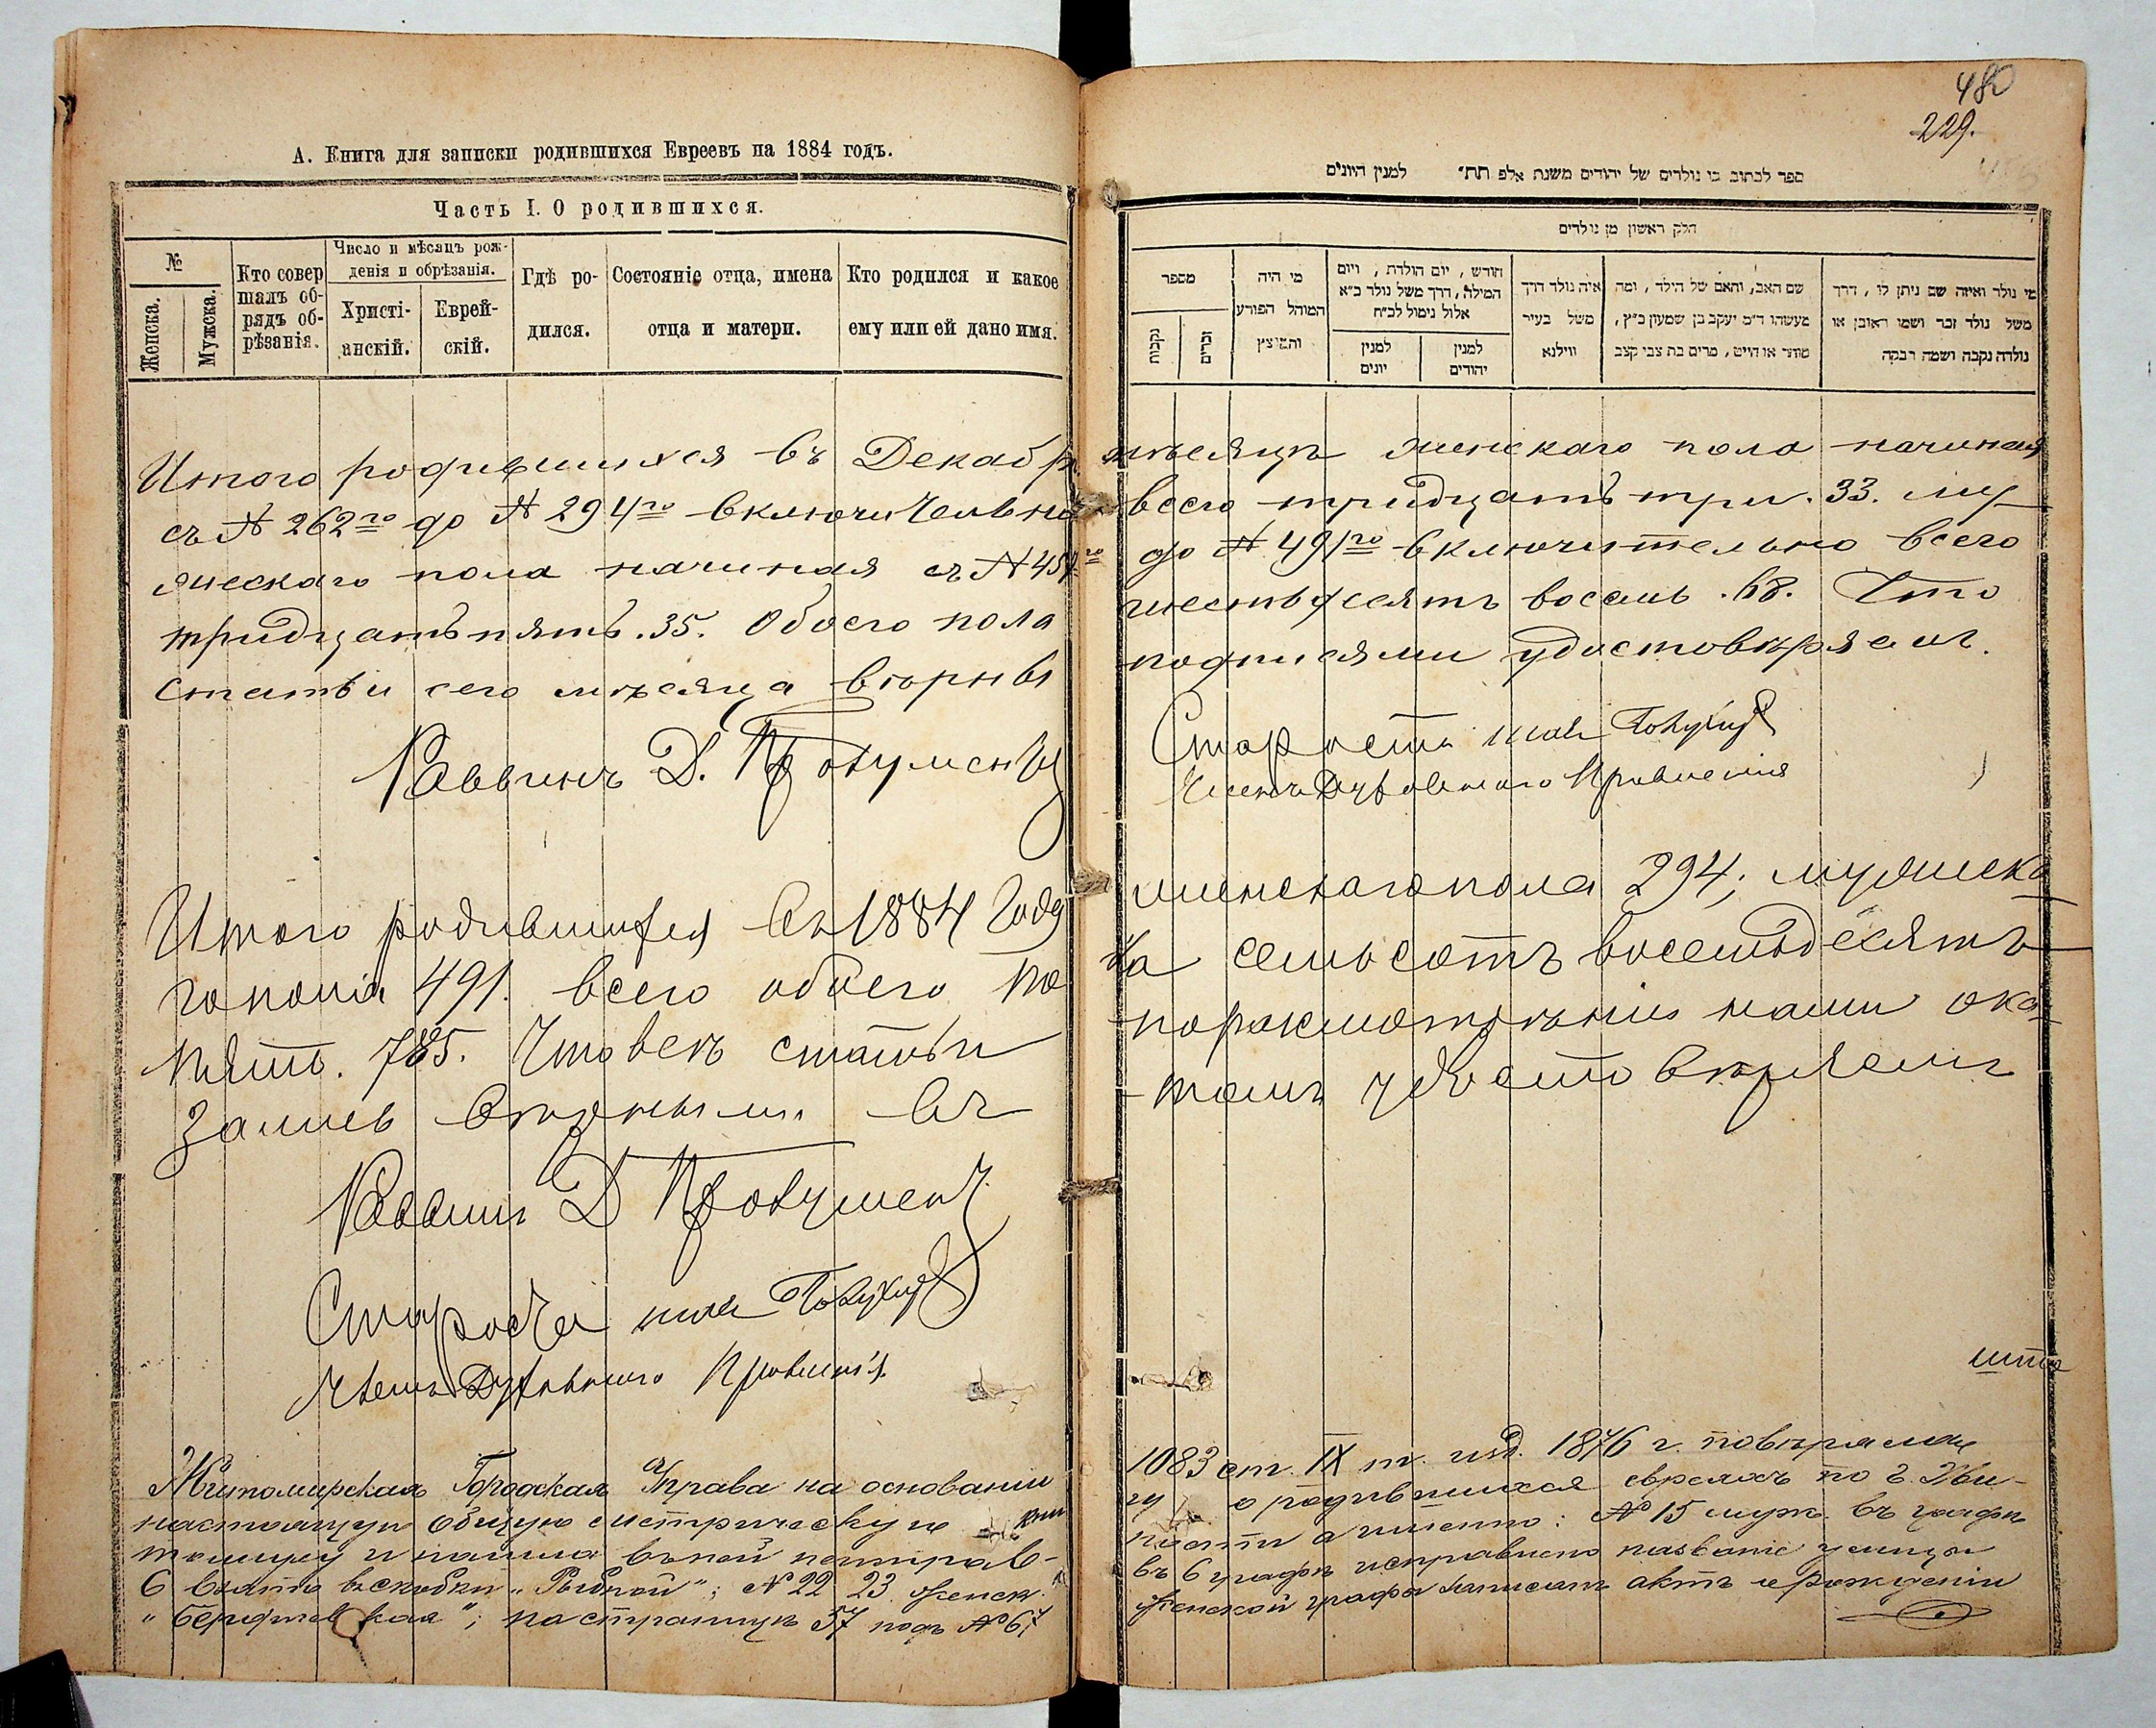 А. Книга для записки родившихся Евреевъ на 1884 годъ.
Часть I. О родившихся.
№
Женска.
Мужска.
Кто совер
шалъ об-
рядъ об-
рѣзанія.
Число и мѣсяцъ рож-
денія и обрѣзанія.
Христі-
анскій.
Еврей-
скій.
Гдѣ ро-
дился.
Состояніе отца, имена
отца и матери.
Кто родился и какое
ему или ей дано имя.
Итого родившихся въ Декабр.
съ № 262го до № 294го включительно
жескаго пола начиная съ № 457го
тридцать пять. 35. Обоего пола
Статьи сего мѣсяца вѣрны
Раввинъ Д.
Итого родившихся въ 1884 году
го пола 491. всего обоего по
пять. 785. Что всѣ статьи
Раввинъ Д
Староста
Членъ Духовнаго Правленія
Житомирская Городская Управа на основаніи
настоящую книг
томиру и нашла въ ней поправ-
6 взято въ скобки „Рыбной"; № 22 23 женск.
„Бердичевская"; на страницѣ 57 подъ № 67
480
229.
ספר לכתוב בו נולדים של יהודים משנת אלפ תת״ למנין היונים
חלק ראשון מן נולדים
מספר
נקבות
זכרים
מי היה
המוהל הפורע
והמוצץ
חודש, יום הולדת, ויום
המילה, דרך משל נולד כ״א
אלול נימול לכ״ח
למנין
יונים
למנין
יהודים
איה נולד דרך
משל בעיר
ווילנא
שם האב, והאם של הילד, ומה
מעשהו ד״מ יעקב בן שמעון כ״ץ,
סוחר או חייט, מרים בת צבי קצב
מי נולד ואיזה שם ניתן לו, דרך
משל נולד זכר ושמו ראובן או
נולדה נקבה ושמה רבקה
мѣсяцѣ женскаго пола начиная
всего тридцать три. 33. му
до № 491го включительно всего
шестьдесятъ восемь. 68. Что
подписями удостовѣряемъ.
Староста
Членъ Духовнаго Правленія
женскаго пола 294; мужска
ла семьсотъ восемьдесятъ
по разсмотрѣніи нами ока
томъ удостовѣряемъ
1083 ст. IX т. изд. 1876 г. повѣряла
гу о родившихся евреяхъ по г. Жи-
а именно: № 15 муж. въ графѣ
въ 6 графѣ исправлено названіе улицы
женской графы написанъ актъ о рожденіи